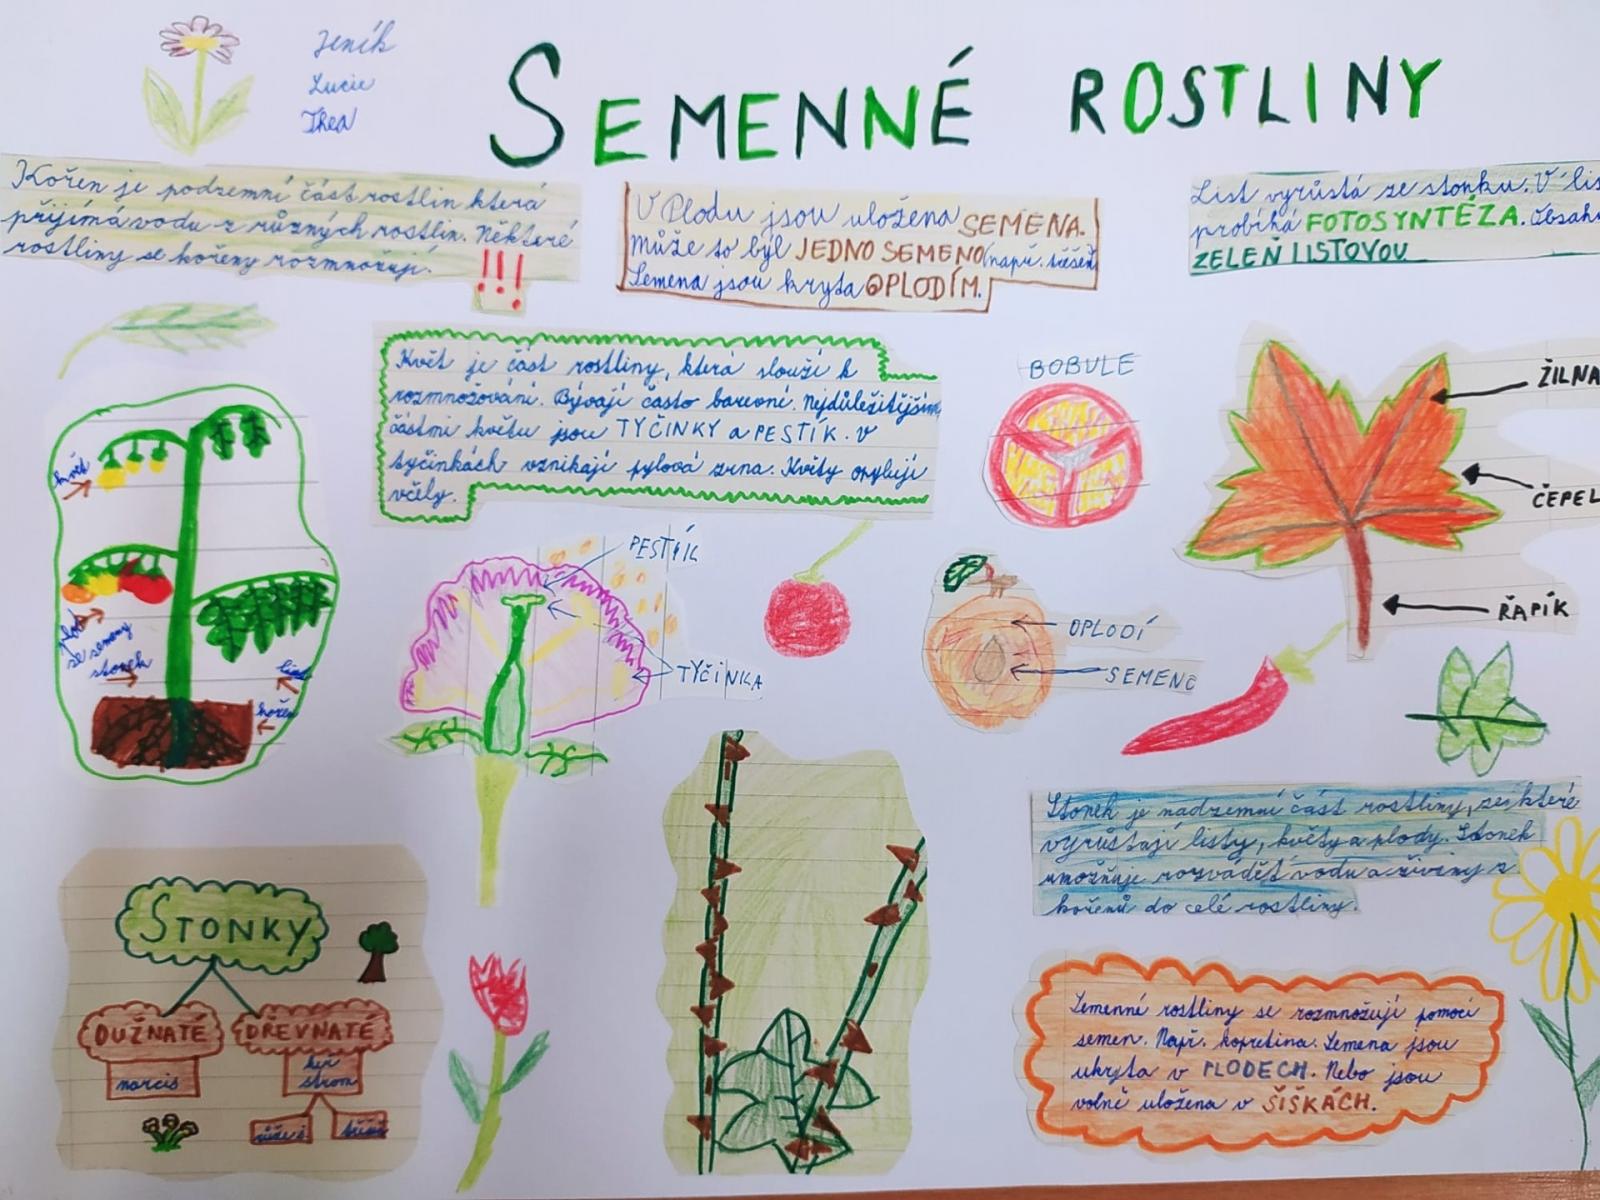 Jeník
Lucie
Thea
SEMENNÉ ROSTLINY
Kořen je podzemní část rostlin která
přijímá vodu z různých rostlin. Některé
rostliny se kořeny rozmnožují.
!!!
V Plodu jsou uložena SEMENA.
Může to být JEDNO SEMENO (např. třešeň)
Semena jsou kryta OPLODÍM.
List vyrůstá ze stonku. V
probíhá FOTOSYNTÉZA.
ZELEŇ LISTOVOU
Květ je část rostliny, která slouží k
rozmnožování. Bývají často barevné. Nejdůležitějšími
částmi květu jsou TYČINKY a PESTÍK. V
tyčinkách vznikají pylová zrna. Květy opylují
včely.
BOBULE
ŽILNA
ČEPEL
ŘAPÍK
květ
plod
se semeny
stonek
list
kořen
PESTÍK
TYČINKA
OPLODÍ
SEMENO
Stonek je nadzemní část rostliny, ze které
vyrůstají listy, květy a plody. Stonek
umožňuje rozvádět vodu a živiny z
kořenů do celé rostliny.
STONKY
DUŽNATÉ
DŘEVNATÉ
narcis
keř
strom
růže
Semenné rostliny se rozmnožují pomocí
semen. Např. kopretina. Semena jsou
ukryta v PLODECH. Nebo jsou
volně uložena v ŠIŠKÁCH.